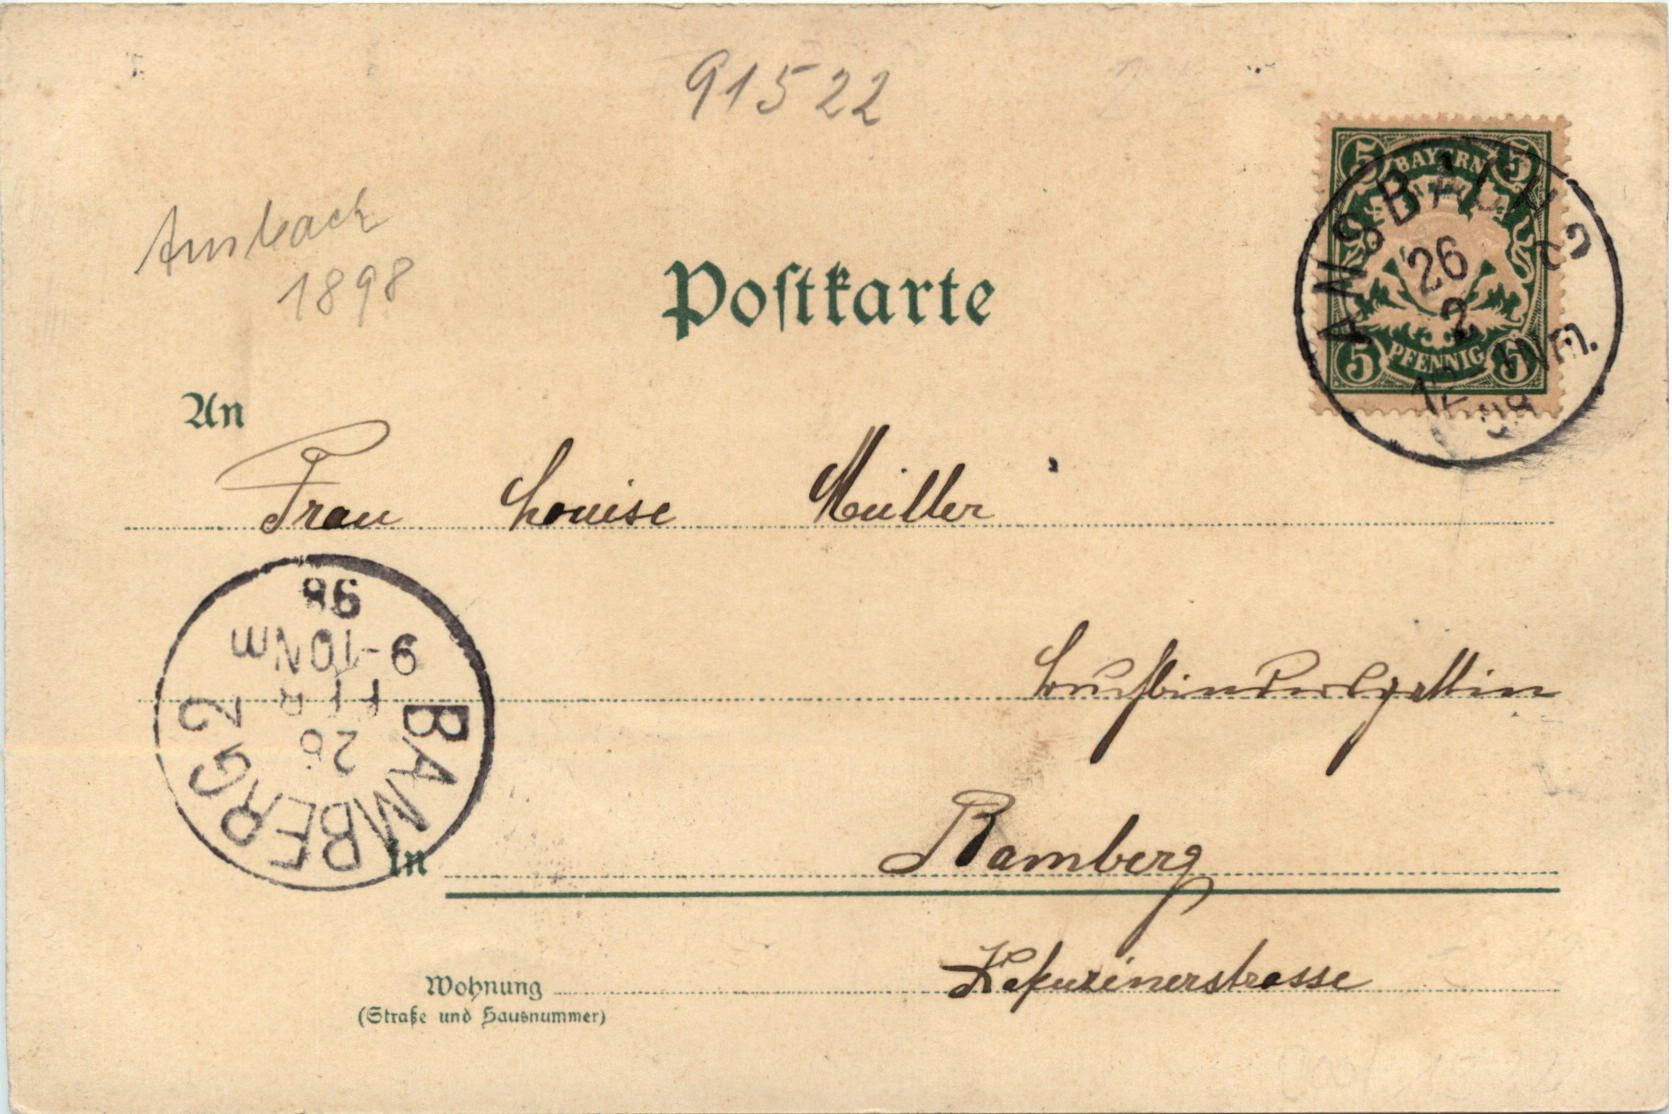 91522
Ansbach
1898
BAYERN
5 5
5 5
PFENNIG
ANSBACH 2
26
2
12 Nm.
98
Postkarte
An
Frau Louise Müller
BAMBERG 2
26
FEB
9-10 Nm
98
Buchbindersgattin
in Bamberg
Wohnung Kapuzinerstrasse
(Straße und Hausnummer)